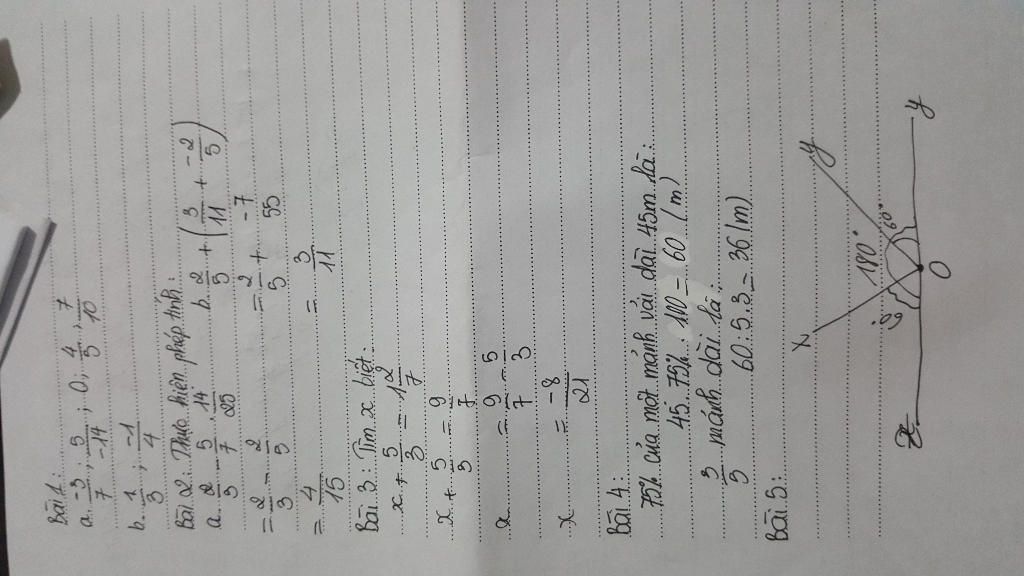 Bài 1:
a. -3/7 ; 5/-14 ; 0 ; 4/5 ; 7/10
b. 1/3 ; -1/4
Bài 2: Thực hiện phép tính:
a. 2/3 - 5/7 . 14/25
b. 2/5 + (3/11 + -2/5)
= 2/3 - 2/5
= 2/5 + -7/55
= 4/15
= 3/11
Bài 3: Tìm x biết:
x + 5/3 = 1 2/7
x + 5/3 = 9/7
x = 9/7 - 5/3
x = -8/21
Bài 4:
75% của một mảnh vải dài 45m là:
45. 75% . 100 = 60 (m)
3/5 mảnh dài là:
60 : 5 . 3 = 36 (m)
Bài 5:
x
y
180°
60°
O
y